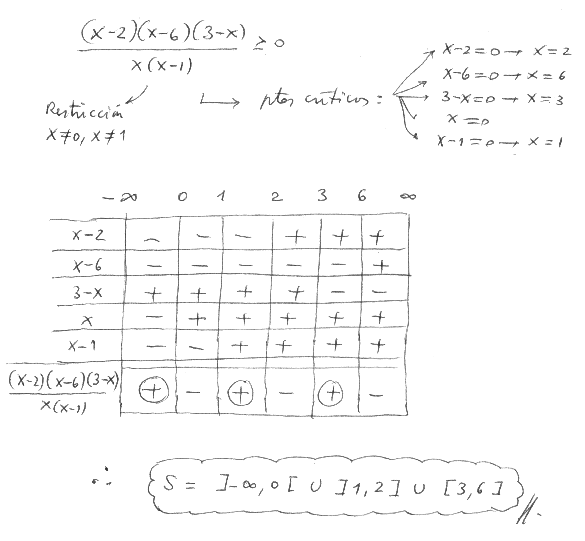 (x-2)(x-6)(3-x) / x(x-1) ≥ 0
Restricción
x≠0, x≠1
↳ ptos críticos:
x-2=0 → x=2
x-6=0 → x=6
3-x=0 → x=3
x=0
x-1=0 → x=1
-∞ 0 1 2 3 6 ∞
x-2 - - - + + +
x-6 - - - - - +
3-x + + + + - -
x - + + + + +
x-1 - - + + + +
(x-2)(x-6)(3-x) / x(x-1) ⊕ - ⊕ - ⊕ -
∴ S = ]-∞,0[ ∪ ]1,2] ∪ [3,6] //.